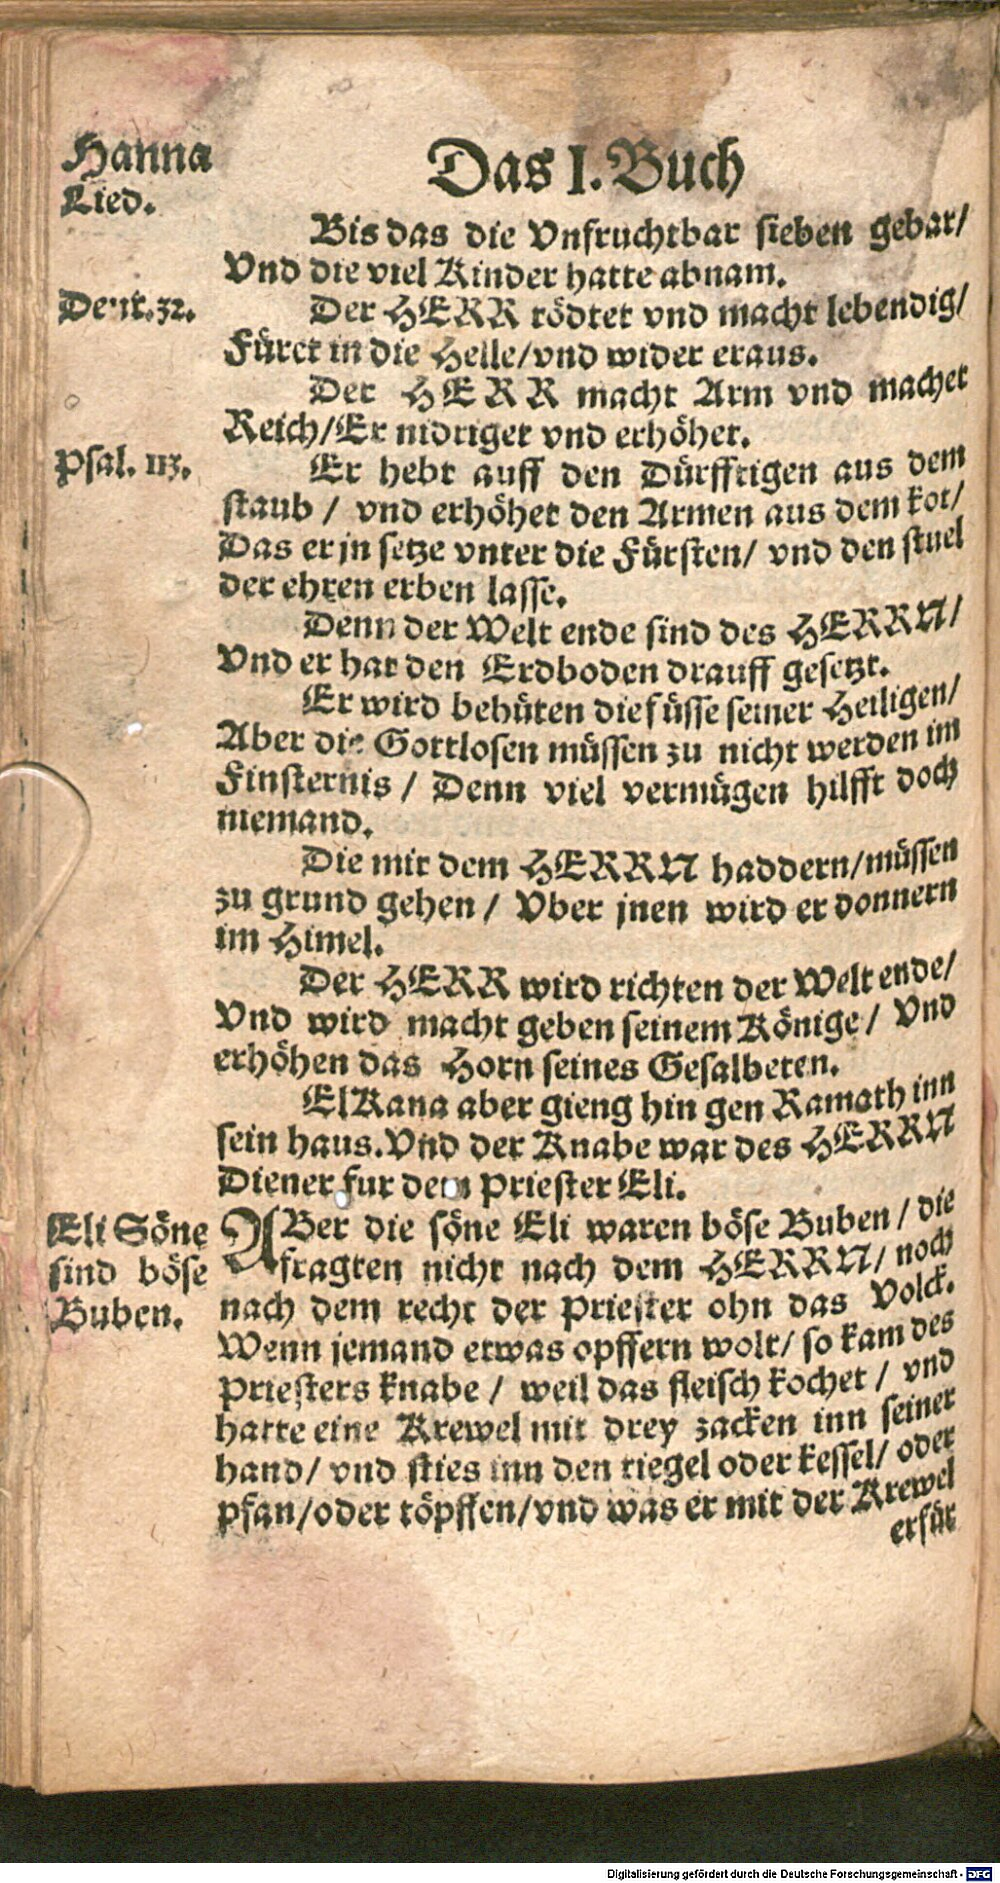 Hanna
Lied.
Das I. Buch
Bis das die Vnfruchtbar sieben gebar/
Vnd die viel Kinder hatte abnam.
Deut. 32.
Der HERR tödtet vnd macht lebendig/
Füret in die Helle/vnd wider eraus.
Der HERR macht Arm vnd machet
Reich/Er nidriget vnd erhöhet.
Psal. 113.
Er hebt auff den Dürfftigen aus dem
staub / vnd erhöhet den Armen aus dem kot/
Das er jn setze vnter die Fürsten/ vnd den stuel
der ehren erben lasse.
Denn der Welt ende sind des HERRN/
Vnd er hat den Erdboden drauff gesetzt.
Er wird behüten die füsse seiner Heiligen/
Aber die Gottlosen müssen zu nicht werden im
Finsternis / Denn viel vermügen hilfft doch
niemand.
Die mit dem HERRN haddern/müssen
zu grund gehen / Vber jnen wird er donnern
im Himel.
Der HERR wird richten der Welt ende/
Vnd wird macht geben seinem Könige / Vnd
erhöhen das Horn seines Gesalbeten.
ElKana aber gieng hin gen Ramath inn
sein haus. Vnd der Knabe war des HERRN
Diener fur dem Priester Eli.
Eli Söne
sind böse
Buben.
ABer die söne Eli waren böse Buben / die
fragten nicht nach dem HERRN/ noch
nach dem recht der Priester ohn das Volck.
Wenn jemand etwas opffern wolt/ so kam des
Priesters knabe / weil das fleisch kochet / vnd
hatte eine Krewel mit drey zacken inn seiner
hand/ vnd sties inn den tiegel oder kessel/ oder
pfan/oder töpffen/vnd was er mit der Krewel
erfür
Digitalisierung gefördert durch die Deutsche Forschungsgemeinschaft - DFG